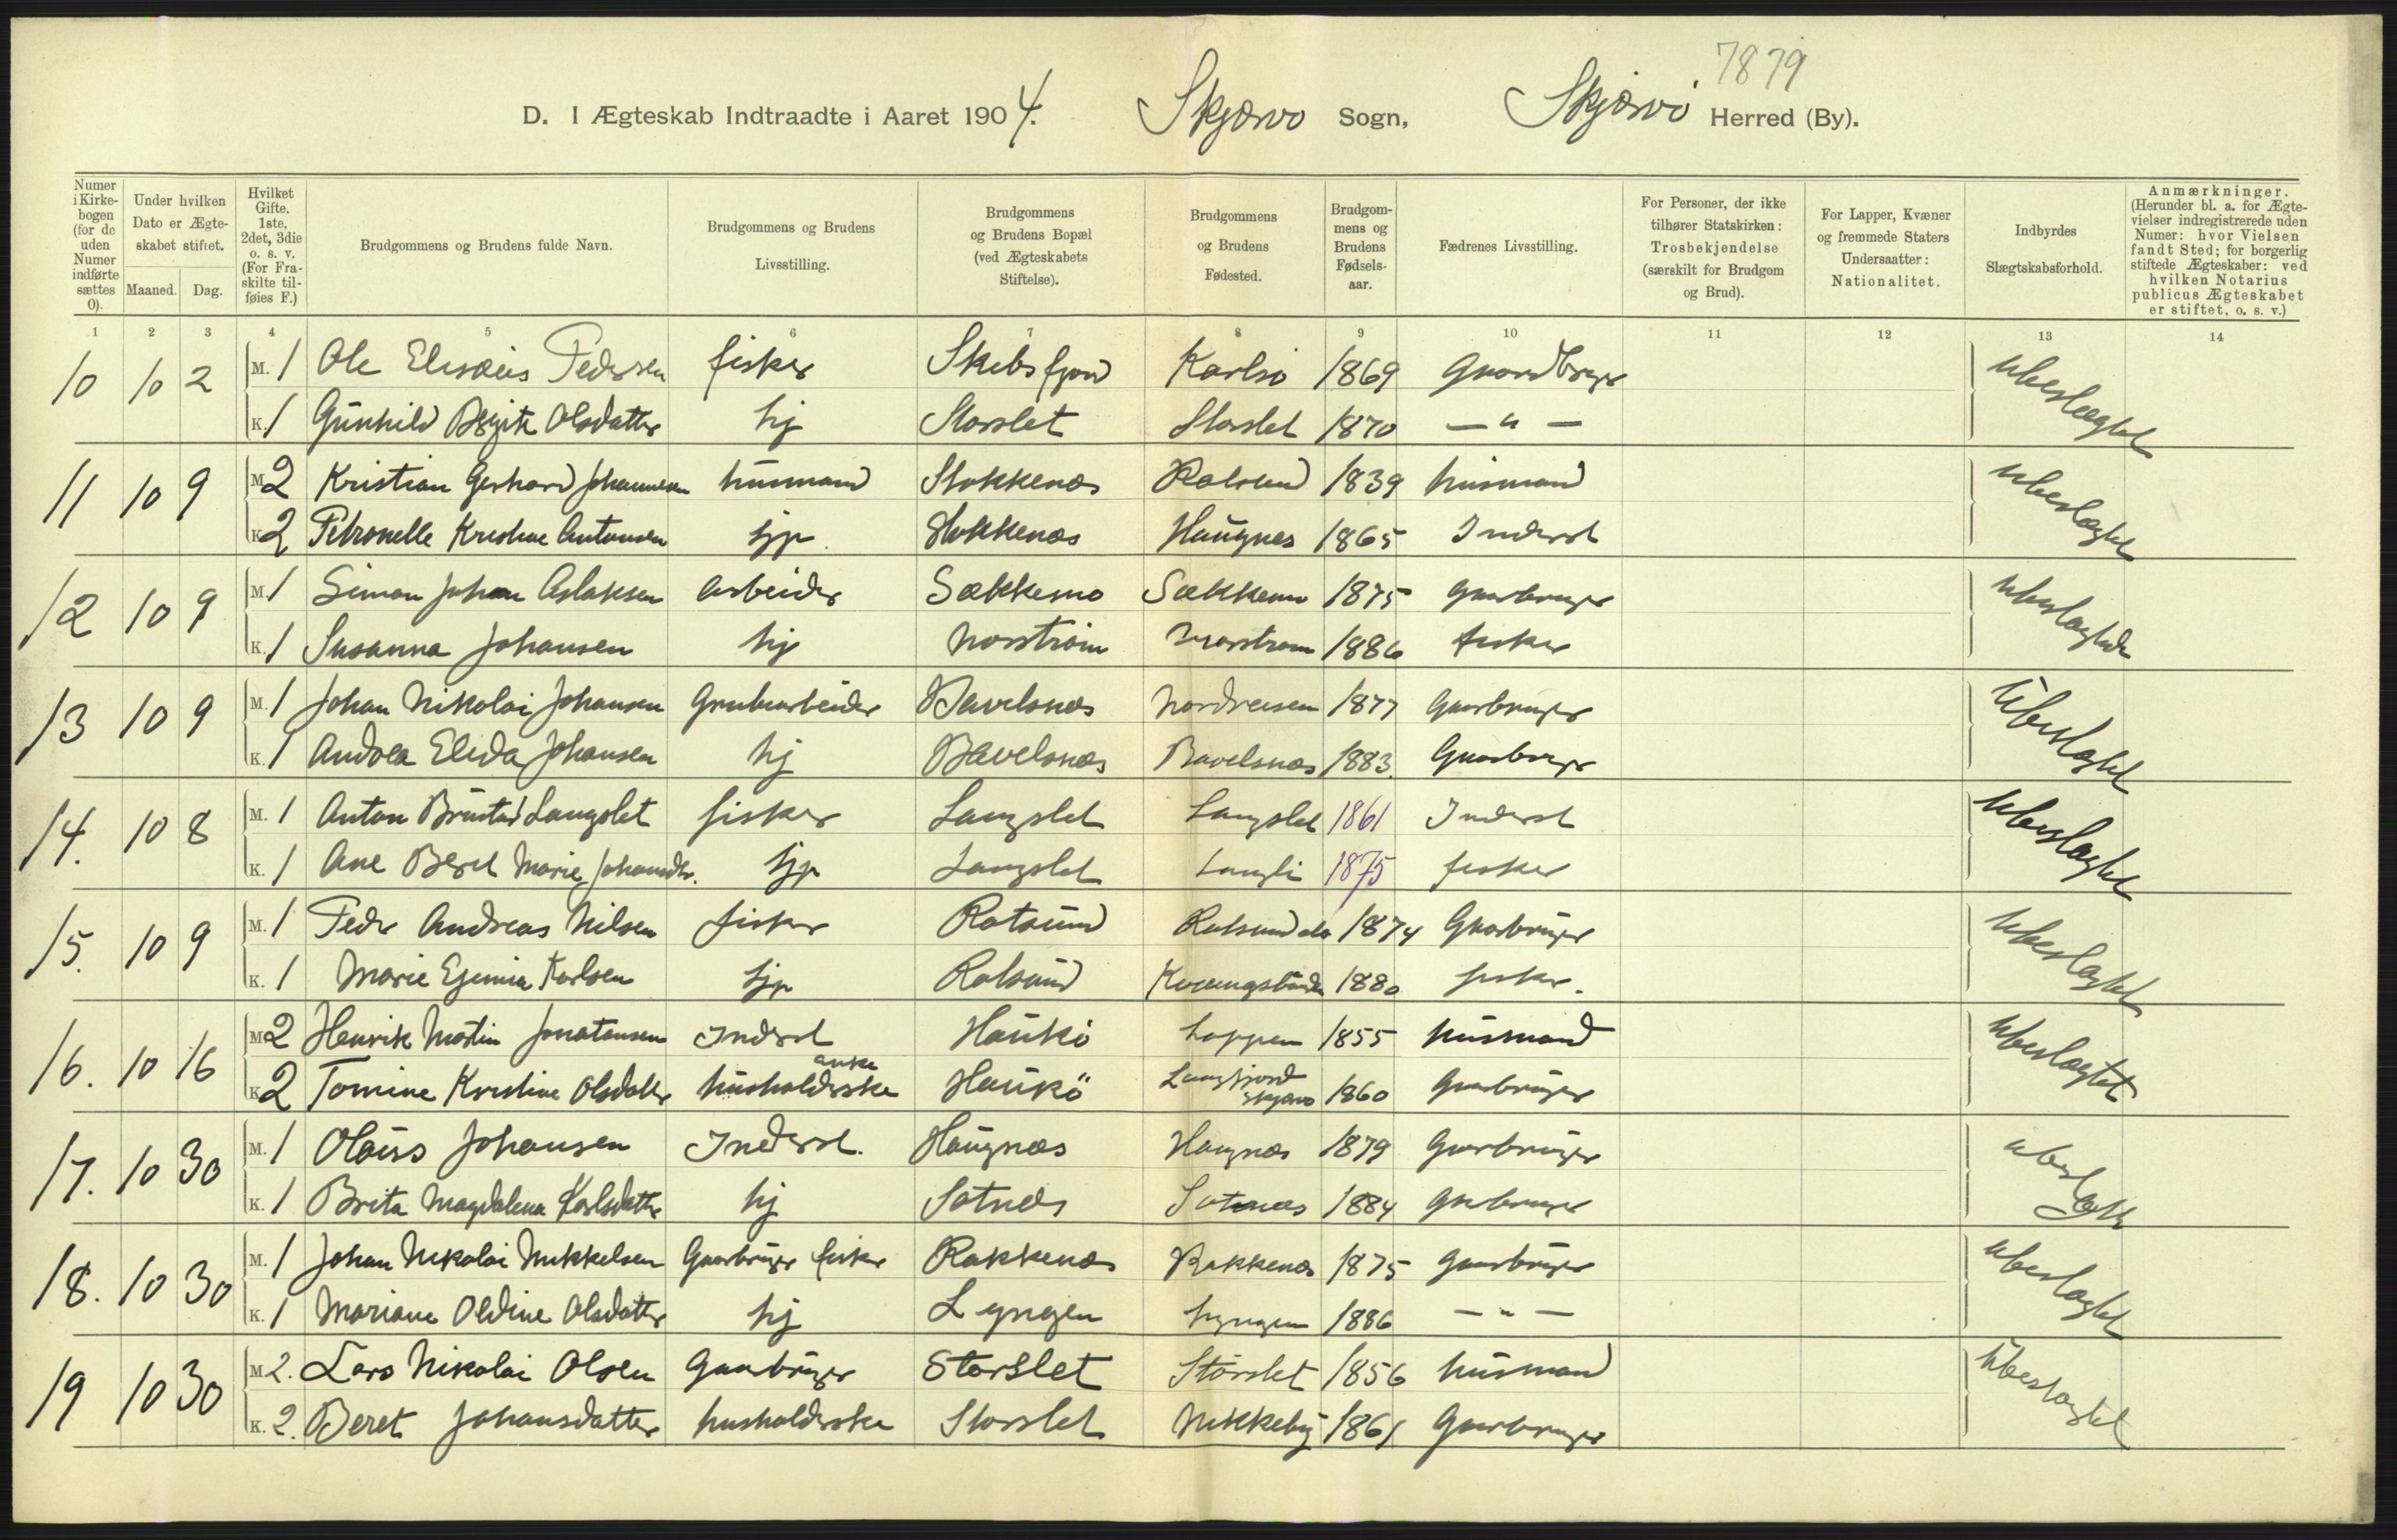 7879
D. I Ægteskab Indtraadte i Aaret 1904. Skjærvø Sogn, Skjærvö Herred (By).
Numer i Kirkebogen (for de uden Numer indførte sættes 0). | Under hvilken Dato er Ægteskabet stiftet. Maaned. Dag. | Hvilket Gifte. 1ste, 2det, 3die o. s. v. (For Fraskilte tilføies F.) | Brudgommens og Brudens fulde Navn. | Brudgommens og Brudens Livsstilling. | Brudgommens og Brudens Bopæl (ved Ægteskabets Stiftelse). | Brudgommens og Brudens Fødested. | Brudgommens og Brudens Fødselsaar. | Fædrenes Livsstilling. | For Personer, der ikke tilhører Statskirken: Trosbekjendelse (særskilt for Brudgom og Brud). | For Lapper, Kvæner og fremmede Staters Undersaatter: Nationalitet. | Indbyrdes Slægtskabsforhold. | Anmærkninger. (Herunder bl. a. for Ægtevielser indregistrerede uden Numer: hvor Vielsen fandt Sted; for borgerlig stiftede Ægteskaber: ved hvilken Notarius publicus Ægteskabet er stiftet, o. s. v.)
1 2 3 4 5 6 7 8 9 10 11 12 13 14
10 10 2 M. 1 Ole Elisæus Pedersen fisker Skibsfjord Karlsö 1869 Gaardbruger ubeslægtet
K. 1 Gunhild Birgite Olsdatter hj Storslet Storslet 1870 — " —
11 10 9 M. 2 Kristian Gerhard Johannesen husmand Stokkenæs Rotsund 1839 husmand ubeslægtet
K. 2 Petronelle Kristine Antonsen hjp. Stokkenæs Haugnes 1865 Inderst
12 10 9 M. 1 Simon Johan Aslaksen Arbeider Sækkemo Sækkemo 1875 Gaarbruger ubeslægtede
K. 1 Susanna Johansen hj Norström Norstrøm 1886 fisker
13 10 9 M. 1 Johan Nikolai Johansen Grubearbeider Bavelsnæs Nordreisen 1877 Gaarbruger Ubeslægtet
K. 1 Andrea Elida Johansen hj Bavelsnæs Bavelsnæs 1883. Gaarbruger
14. 10 8 M. 1 Anton Brustad Langslet fisker Langslet Langslet 1861 Inderst Ubeslægtet
K. 1 Ane Beret Marie Johansdtr. hjp Langslet Langli 1875 fisker
15. 10 9 M. 1 Peder Andreas Nilsen fisker Rotsund Rotsund 1874 Gaarbruger ubeslægtet
K. 1 Marie Karlsen hjp Rotsund 1880 fisker.
16. 10 16 M. 2 Henrik Martin Jonatansen Inderst Haukö Loppen 1855 husmand ubeslægtet
K. 2 Tomine Kristine Olsdatter enke husholderske Haukö Langfjord Skjærvø 1860 Gaarbruger
17. 10 30 M. 1 Olaus Johansen Inderst. Haugnæs Haugnæs 1879 Gaarbruger ubeslægt
K. 1 Brita Magdalena Karlsdatter hj Sotnæs Sotnæs 1884 Gaarbruger
18. 10 30 M. 1 Johan Nikolai Mikkelsen Gaarbruger fisker Rakkenæs Rakkenæs 1875 Gaarbruger ubeslægtet
K. 1 Mariane Oldine Olsdatter hj Lyngen Lyngen 1886 — " —
19 10 30 M. 2. Lars Nikolai Olsen Gaarbruger Storslet Storslet 1856 husmand Ubeslægtet
K. 2. Beret Johansdatter husholderske Storslet Nikkeby 1861 Gaarbruger